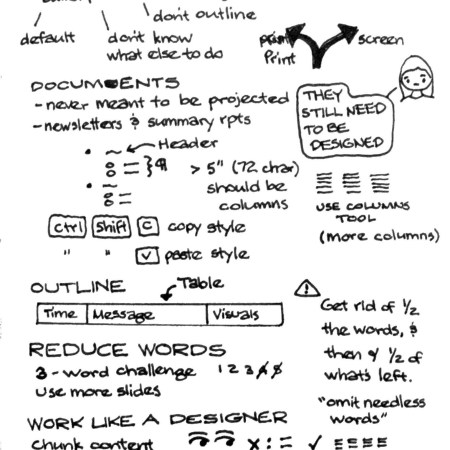 don't outline
default
don't know
what else to do
print
Print
screen
DOCUMENTS
- never meant to be projected
- newsletters & summary rpts
THEY
STILL NEED
TO BE
DESIGNED
Header
> 5" (72 char)
should be
columns
USE COLUMNS
TOOL
(more columns)
Ctrl Shift C copy style
" " V paste style
OUTLINE
Table
Time Message Visuals
Get rid of 1/2
the words, &
then 1/2 of
what's left.
"omit needless
words"
REDUCE WORDS
3-word challenge 1 2 3 4 5
use more slides
WORK LIKE A DESIGNER
Chunk content